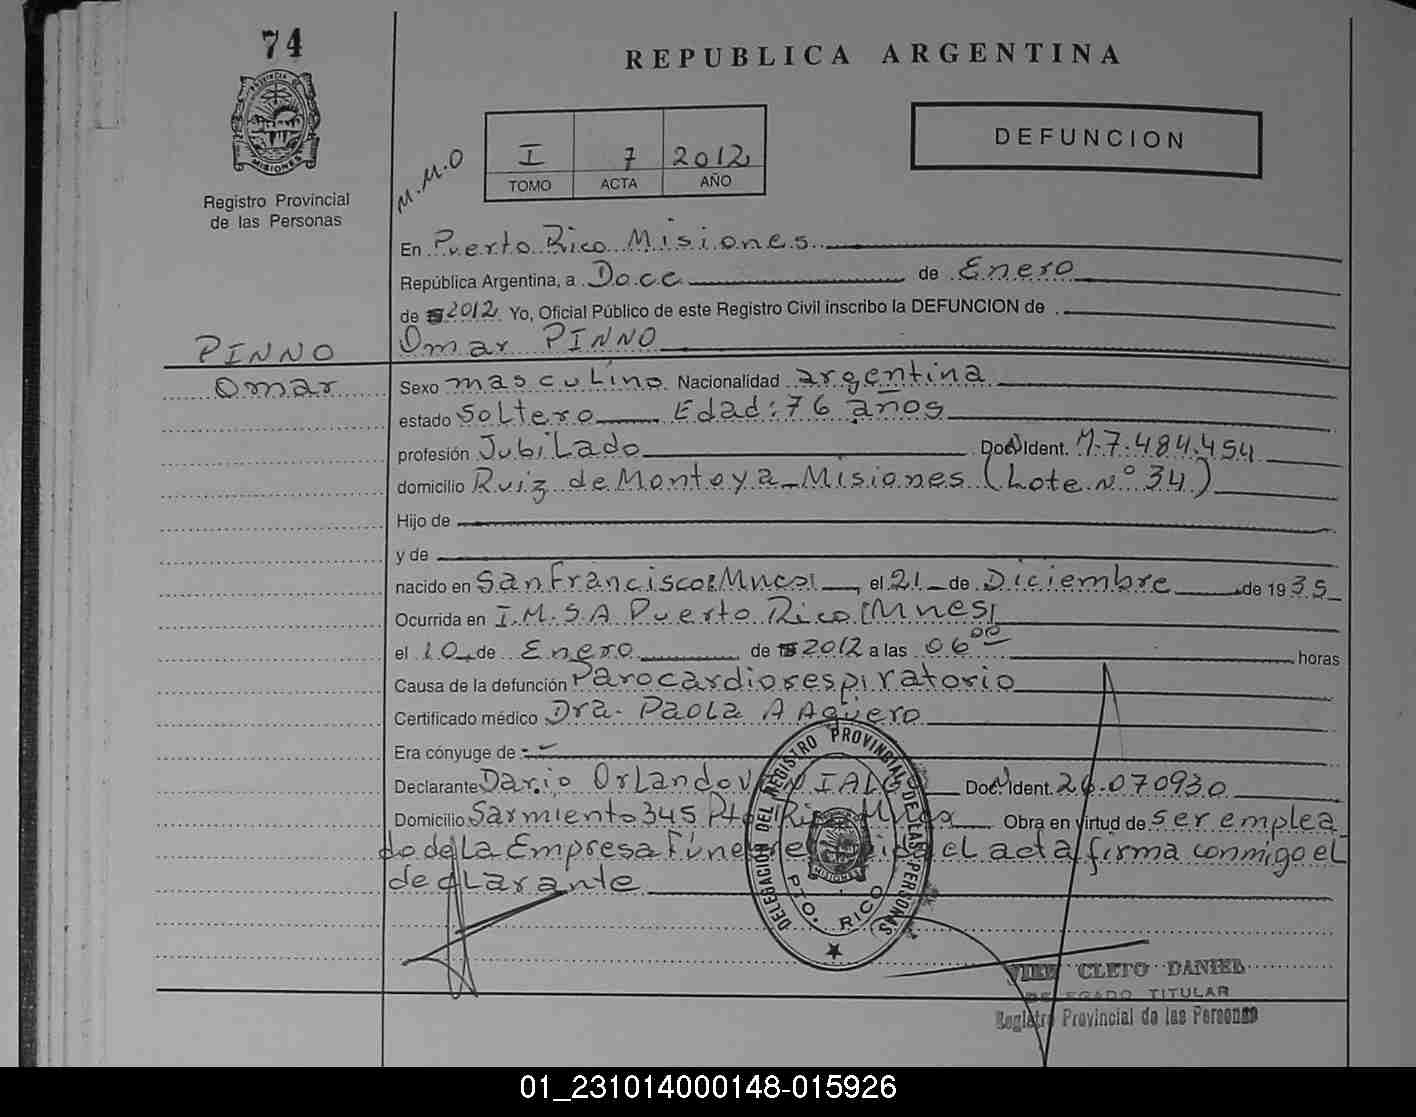 74
REPUBLICA ARGENTINA
PROVINCIA DE
MISIONES
Registro Provincial
de las Personas
M.M.O
I 7 2012
TOMO ACTA AÑO
DEFUNCION
En Puerto Rico Misiones
República Argentina, a Doce de Enero
de 2012 Yo, Oficial Público de este Registro Civil inscribo la DEFUNCION de
Omar PINNO
PINNO
Omar
Sexo masculino Nacionalidad argentina
estado Soltero Edad: 76 años
profesión Jubilado Doc Ident. M.7.484.454
domicilio Ruiz de Montoya - Misiones (Lote Nº 34)
Hijo de
y de
nacido en San Francisco el 21 de Diciembre de 1935
Ocurrida en I.M.S.A Puerto Rico (Mnes)
el 10 de Enero de 2012 a las 06 00 horas
Causa de la defunción Parocardiorespiratorio
Certificado médico Dra. Paola A Agüero
Era cónyuge de
Declarante Dario Orlando Doc Ident. 26.070930
Domicilio Sarmiento 345 Pto Rico Mnes Obra en virtud de ser emplea
do de la Empresa Funebre el acta firma conmigo el
declarante
DELEGACIÓN DEL REGISTRO PROVINCIAL DE LAS PERSONAS
MISIONES
PTO. RICO
CLETO DANIEL
DELEGADO TITULAR
Registro Provincial de las Personas
01_231014000148-015926